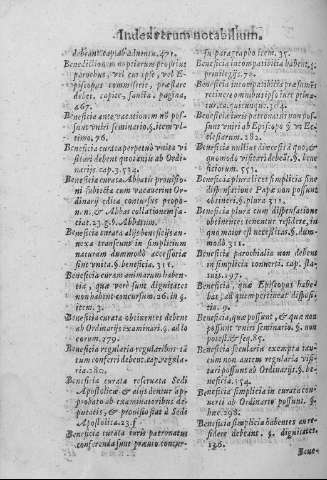 Index rerum notabilium.
debeant, capi. ab. 471.
Benedictionem nuptiarum proprius
parochus, vel eum ipse, vel E-
piscopus commisserit, præstare
debet, capite, sancta, pagina,
467.
Beneficia ante vacationem non pos-
sunt vniri seminario. §. item vl-
timo. 76.
Beneficia curata perpetuò vnita vi-
sitari debent quotannis ab Ordi-
narijs cap. 3. 534.
Beneficia curata Abbatis prouisio-
ni subiecta cum vacauerint Or-
dinarij edita concursus propo-
nant, & Abbas collationem fa-
ciat.
Beneficia curata alijs beneficijs an-
nexa transeunt in simplicium
naturam dummodo accessoria
sint vnita. §. beneficia. 311.
Beneficia curam animarum haben-
tia, quæ verò sunt dignitates
non habent concursum. 26. in §.
item. 3.
Beneficia curata obtinentes debent
ab Ordinarijs examinari. §. ad lo
corum. 279.
Beneficia regularia regularibus tā
tum conferri debent. cap. regula-
ria. 280.
Beneficia curata reseruata Sedi
Apostolicæ & alijs dentur ap-
probato ab examinatoribus de-
putatis, & prouisio fiat à Sede
Apostolica. 23. f
Beneficia curata iuris patronatus
conferenda sunt præuio concur-
su paragrapho item. 35.
Beneficia incompatibilia habens, §.
priuilegijs. 70.
Beneficia incompatibilia
retinere prima
to, quicunque. 314.
Beneficia iuris patronatus non pos-
sunt vniri ab Episcopo § vt Ec-
clesiarum. 282.
Beneficia nullius diœcesis à quo, &
quomodo visitari debeāt. §. bene
ficiorum. 551.
Beneficia plura licet simplicia sine
dispensatione Papæ non possunt
obtineri. §. plura 311.
Beneficia plura cum dispensatione
obtinentes tenentur residere, in
quo maior est necessitas. §. dum-
modo. 311.
Beneficia parochialia non debent
in simplicia conuerti. cap. sta-
tuit. 197.
Beneficia, quæ Episcopus habe-
bat, ad quem pertineat disposi-
tio. 9.
Beneficia, quæ possunt, & quæ non
possunt vniri seminario. §. non
potest, & seq. 85.
Beneficia secularia exempta tan-
cum non autem regularia visi-
tari possunt ab Ordinarijs. §. be-
neficia. 554.
Beneficia simplicia in curata con-
uerti ab Ordinario possunt. §.
hæc. 298.
Beneficia simplicia habentes an re-
sidere debeant. §. dignitates.
136.
Bene-